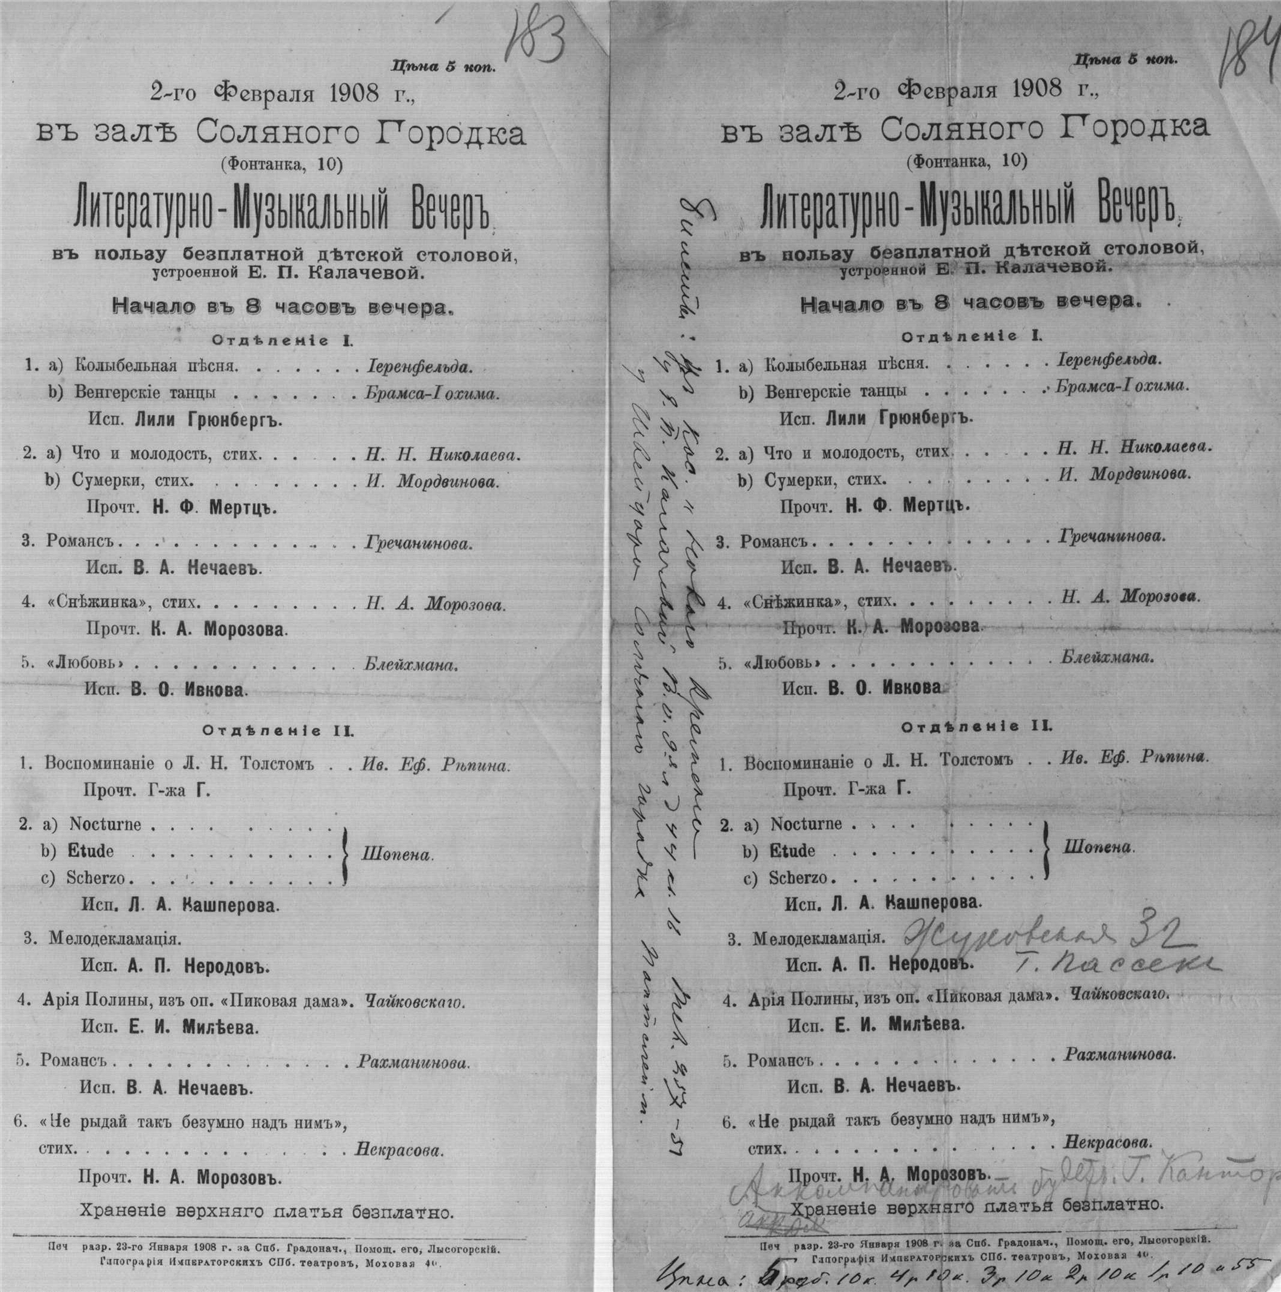 183
Цѣна 5 коп.
2-го Февраля 1908 г.,
въ залѣ Соляного Городка
(Фонтанка, 10)
Литературно-Музыкальный Вечеръ,
въ пользу безплатной дѣтской столовой,
устроенной Е. П. Калачевой.
Начало въ 8 часовъ вечера.
Отдѣленіе I.
1. a) Колыбельная пѣсня. . . . . . . Іеренфельда.
b) Венгерскіе танцы . . . . . . . Брамса-Іохима.
Исп. Лили Грюнбергъ.
2. a) Что и молодость, стих. . . . . . Н. Н. Николаева.
b) Сумерки, стих. . . . . . . . . И. Мордвинова.
Прочт. Н. Ф. Мертцъ.
3. Романсъ. . . . . . . . . . . . . Гречанинова.
Исп. В. А. Нечаевъ.
4. «Снѣжинка», стих. . . . . . . . . Н. А. Морозова.
Прочт. К. А. Морозова.
5. «Любовь» . . . . . . . . . . . . Блейхмана.
Исп. В. О. Ивкова.
Отдѣленіе II.
1. Воспоминаніе о Л. Н. Толстомъ . . Ив. Еф. Рѣпина.
Прочт. Г-жа Г.
2. a) Nocturne . . . . . . . . .
b) Etude . . . . . . . . . . . Шопена.
c) Scherzo. . . . . . . . . . .
Исп. Л. А. Кашперова.
3. Мелодекламація.
Исп. А. П. Неродовъ.
4. Арія Полины, изъ оп. «Пиковая дама». Чайковскаго.
Исп. Е. И. Милѣева.
5. Романсъ . . . . . . . . . . . . . Рахманинова.
Исп. В. А. Нечаевъ.
6. «Не рыдай такъ безумно надъ нимъ»,
стих. . . . . . . . . . . . . . Некрасова.
Прочт. Н. А. Морозовъ.
Храненіе верхняго платья безплатно.
Печ разр. 23-го Января 1908 г. за Спб. Градонач., Помощ. его, Лысогорскій.
Типографія Императорскихъ СПб. театровъ, Моховая 40.
184
Цѣна 5 коп.
2-го Февраля 1908 г.,
въ залѣ Соляного Городка
(Фонтанка, 10)
Литературно-Музыкальный Вечеръ,
въ пользу безплатной дѣтской столовой,
устроенной Е. П. Калачевой.
Начало въ 8 часовъ вечера.
Отдѣленіе I.
1. a) Колыбельная пѣсня. . . . . . . Іеренфельда.
b) Венгерскіе танцы . . . . . . . Брамса-Іохима.
Исп. Лили Грюнбергъ.
2. a) Что и молодость, стих. . . . . . Н. Н. Николаева.
b) Сумерки, стих. . . . . . . . . И. Мордвинова.
Прочт. Н. Ф. Мертцъ.
3. Романсъ. . . . . . . . . . . . . Гречанинова.
Исп. В. А. Нечаевъ.
4. «Снѣжинка», стих. . . . . . . . . Н. А. Морозова.
Прочт. К. А. Морозова
5. «Любовь» . . . . . . . . . . . . Блейхмана.
Исп. В. О. Ивкова
Отдѣленіе II.
1. Воспоминаніе о Л. Н. Толстомъ . . Ив. Еф. Рѣпина.
Прочт. Г-жа Г.
2. a) Nocturne . . . . . . . . .
b) Etude . . . . . . . . . . . Шопена.
c) Scherzo. . . . . . . . . . .
Исп. Л. А. Кашперова.
3. Мелодекламація. Жуковская 32
Исп. А. П. Неродовъ. Г. Пассекъ
4. Арія Полины, изъ оп. «Пиковая дама». Чайковскаго.
Исп. Е. И. Милѣева.
5. Романсъ . . . . . . . . . . . . . Рахманинова.
Исп. В. А. Нечаевъ.
6. «Не рыдай такъ безумно надъ нимъ»,
стих. . . . . . . . . . . . . . Некрасова.
Прочт. Н. А. Морозовъ.
Аккомпанировать будетъ. Г. Кантор
Храненіе верхняго платья безплатно.
Печ разр. 23-го Января 1908 г. за Спб. Градонач., Помощ. его, Лысогорскій.
Типографія Императорскихъ СПб. театровъ, Моховая 40.
Цѣна: 5 руб. 10 к. 4 р 10 к. 3 р 10 к 2 р 10 к 1 р 10 и 55
Билеты:
В. О. 9 я л д 44 кв. 16 тел. 257-51
у Швейцара Соляного городка